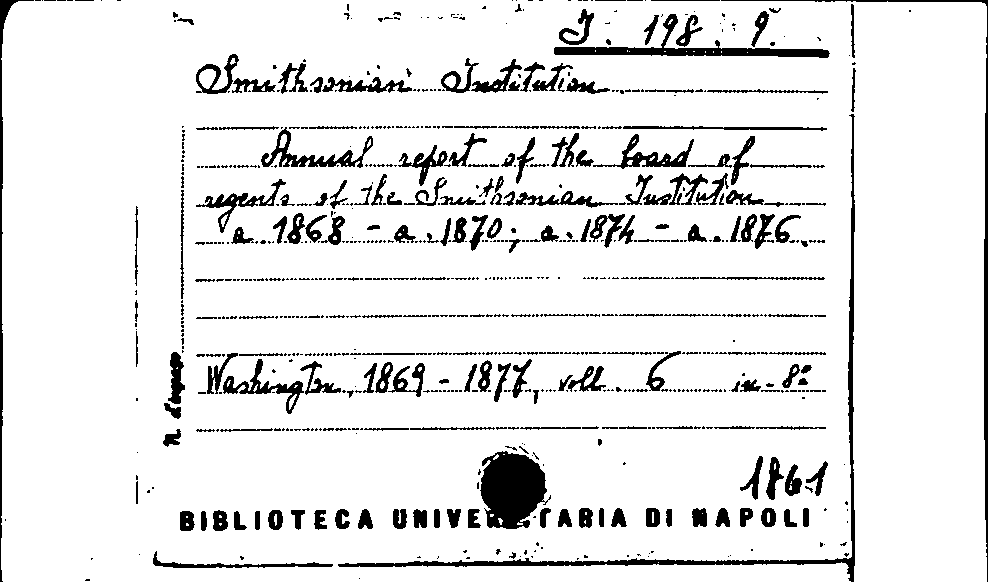 J. 198. 9.
Smithsonian Institution
Annual report of the board of
regents of the Smithsonian Institution.
a. 1868 - a. 1870; a. 1874 - a. 1876.
Washington, 1869 - 1877, voll. 6 in-8°
N. d'ingresso
1861
BIBLIOTECA UNIVERSITARIA DI NAPOLI